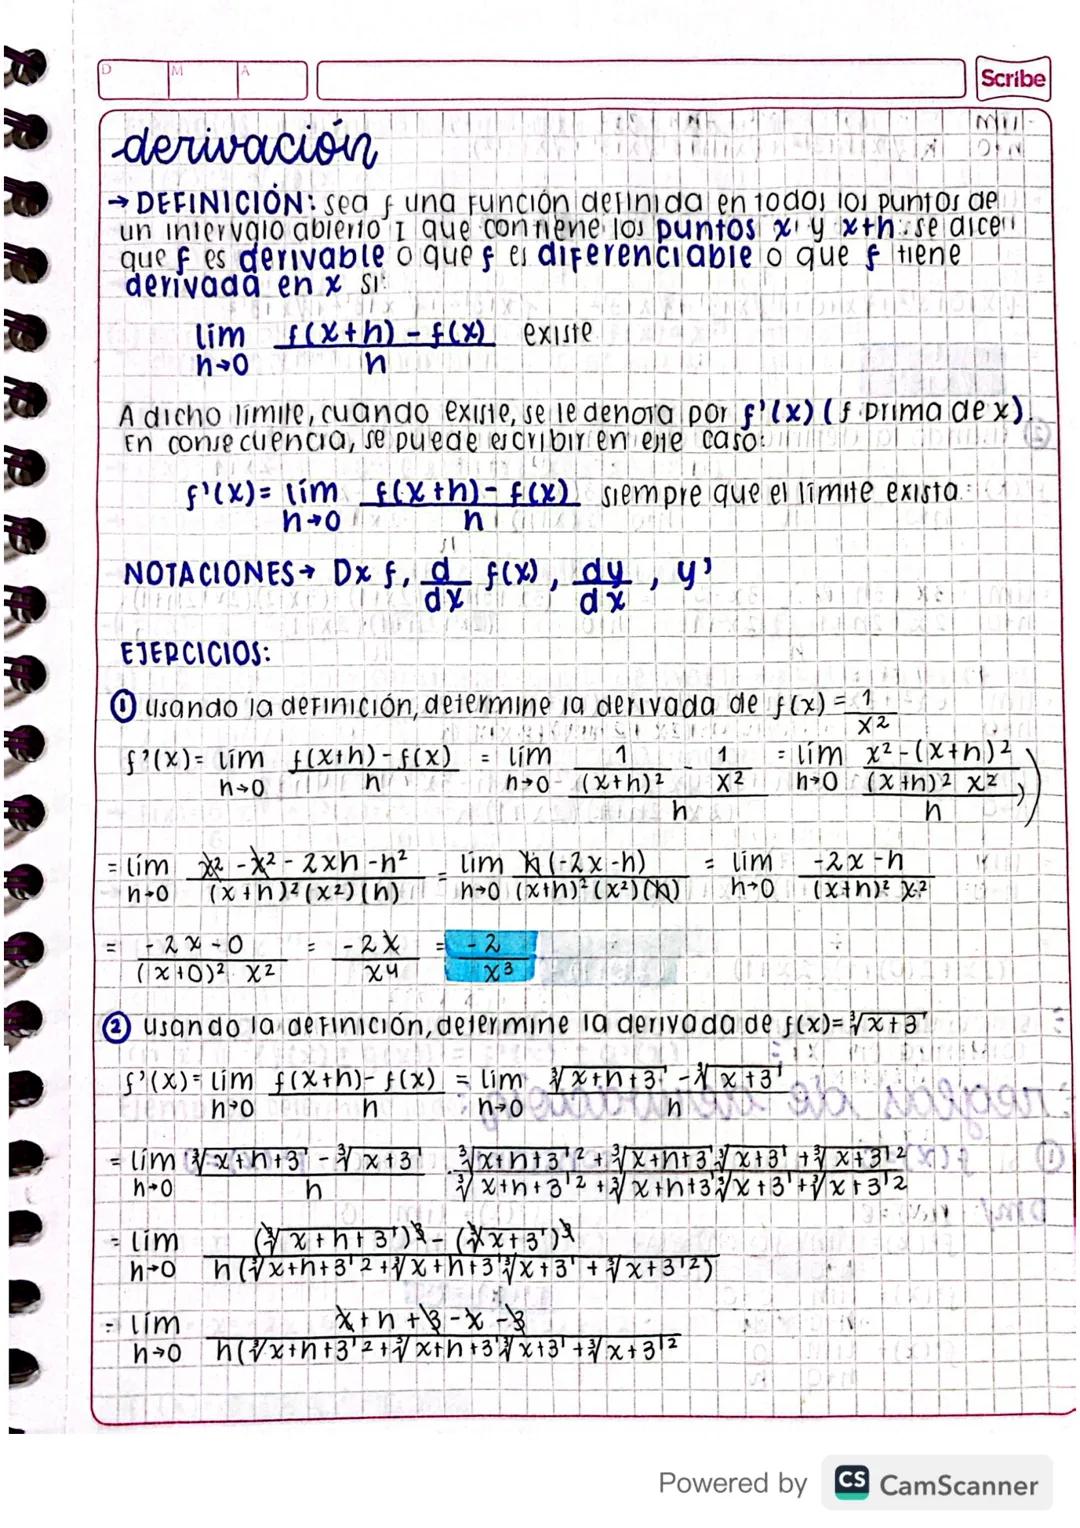 D M A
Scribe
derivación
→ DEFINICIÓN: sea f una función definida en todos los puntos de
un intervalo abierto I que contiene los puntos x y x+h: se dice
que f es derivable o que f es diferenciable o que f tiene
derivada en x si:
lím h→0 f(x+h) - f(x) / h existe
A dicho límite, cuando existe, se le denota por f'(x) (f prima de x).
En consecuencia, se puede escribir en ese caso:
f'(x) = lím h→0 f(x+h) - f(x) / h siempre que el límite exista.
NOTACIONES → Dx f, d/dx f(x), dy/dx, y'
EJERCICIOS:
① usando la definición, determine la derivada de f(x) = 1/x²
f'(x) = lím h→0 f(x+h) - f(x) / h = lím h→0 1/(x+h)² - 1/x² / h = lím h→0 x² - (x+h)² / (x+h)² x² / h
= lím h→0 x² - x² - 2xh - h² / (x+h)² (x²) (h) = lím h→0 h(-2x-h) / (x+h)² (x²) (h) = lím h→0 -2x-h / (x+h)² x²
= -2x-0 / (x+0)² x² = -2x / x⁴ = -2 / x³
② usando la definición, determine la derivada de f(x) = ∛x+3
f'(x) = lím h→0 f(x+h) - f(x) / h = lím h→0 ∛x+h+3 - ∛x+3 / h
= lím h→0 ∛x+h+3 - ∛x+3 / h · ∛x+h+3² + ∛x+h+3 ∛x+3 + ∛x+3² / ∛x+h+3² + ∛x+h+3 ∛x+3 + ∛x+3²
= lím h→0 (∛x+h+3)³ - (∛x+3)³ / h(∛x+h+3² + ∛x+h+3 ∛x+3 + ∛x+3²)
= lím h→0 x+h+3-x-3 / h(∛x+h+3² + ∛x+h+3 ∛x+3 + ∛x+3²
Powered by CS CamScanner